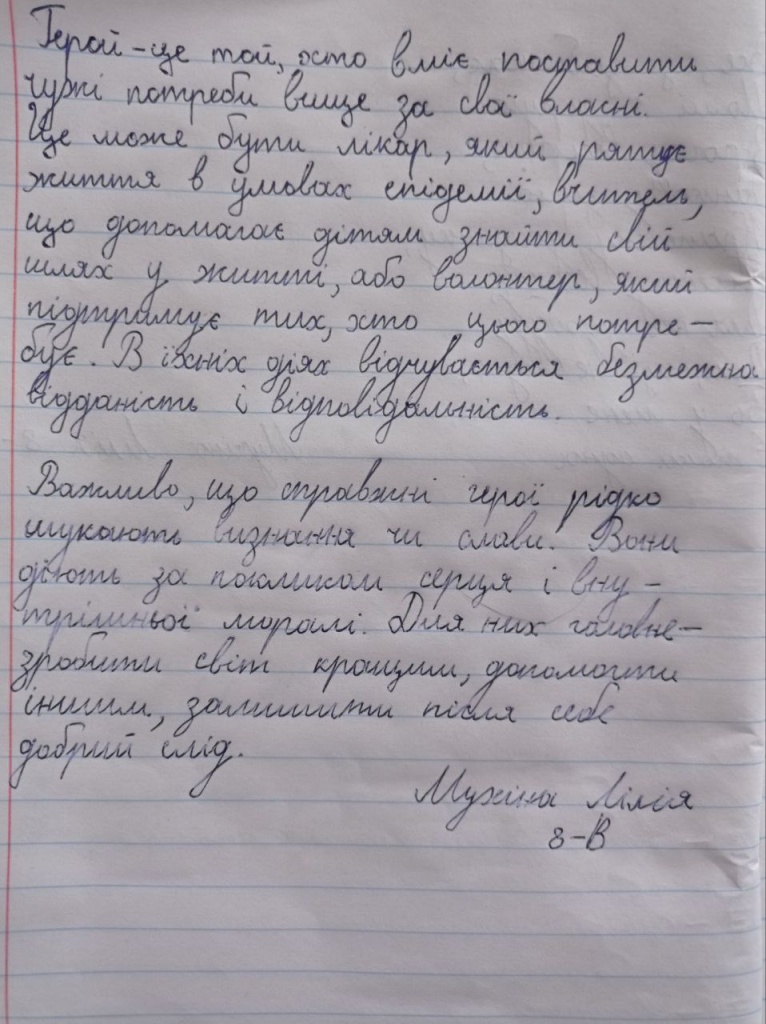 Герой - це той, хто вміє поставити
чужі потреби вище за свої власні.
Це може бути лікар, який рятує
життя в умовах епідемії, вчитель,
що допомагає дітям знайти свій
шлях у житті, або волонтер, який
підтримує тих, хто цього потре-
бує. В їхніх діях відчувається безмежна
відданість і відповідальність.
Важливо, що справжні герої рідко
шукають визнання чи слави. Вони
діють за покликом серця і вну-
трішньої моралі. Для них головне-
зробити світ кращим, допомогти
іншим, залишити після себе
добрий слід.
Мухіна Лілія
8-В